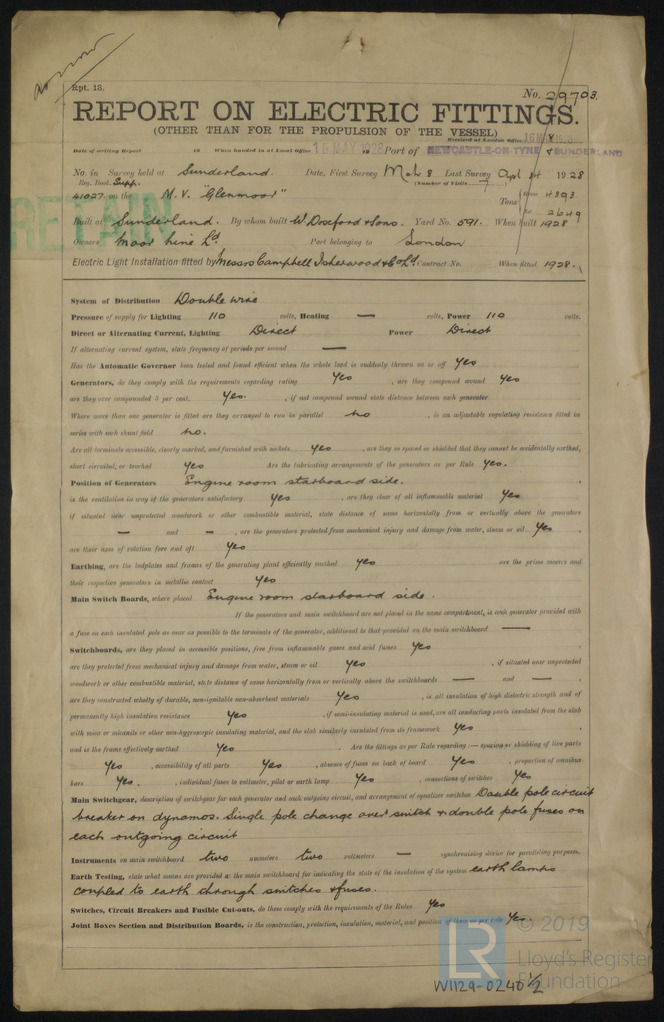 Rpt. 13.
No. 29703.
REPORT ON ELECTRIC FITTINGS.
(OTHER THAN FOR THE PROPULSION OF THE VESSEL)
Received at London Office
Date of writing Report 19 When handed in at Local Office 15 MAY 1928 Port of NEWCASTLE-ON-TYNE & SUNDERLAND
No. in Survey held at Sunderland. Date, First Survey Mch 8 Last Survey Apl 24 1928
Reg. Book. Supp. (Number of Visits 7)
41027. on the M.V. "Glenmoor" Tons Gross 4393
Net 2649
Built at Sunderland. By whom built W Doxford & Sons. Yard No. 591. When built 1928
Owners Moor Line Ld. Port belonging to London
Electric Light Installation fitted by Messrs Campbell Isherwood & Co Ld. Contract No. When fitted 1928.
RETAIN
System of Distribution Double wire
Pressure of supply for Lighting 110 volts, Heating — volts, Power 110 volts.
Direct or Alternating Current, Lighting Direct Power Direct
If alternating current system, state frequency of periods per second —
Has the Automatic Governor been tested and found efficient when the whole load is suddenly thrown on or off Yes
Generators, do they comply with the requirements regarding rating Yes, are they compound wound Yes
are they over compounded 5 per cent. Yes., if not compound wound state distance between each generator
Where more than one generator is fitted are they arranged to run in parallel no, is an adjustable regulating resistance fitted in
series with each shunt field no.
Are all terminals accessible, clearly marked, and furnished with sockets Yes, are they so spaced or shielded that they cannot be accidentally earthed,
short circuited, or touched Yes Are the lubricating arrangements of the generators as per Rule Yes.
Position of Generators Engine room starboard side.
is the ventilation in way of the generators satisfactory Yes, are they clear of all inflammable material Yes
if situated near unprotected woodwork or other combustible material, state distance of same horizontally from or vertically above the generators
— and —, are the generators protected from mechanical injury and damage from water, steam or oil Yes,
are their axes of rotation fore and aft Yes
Earthing, are the bedplates and frames of the generating plant efficiently earthed Yes are the prime movers and
their respective generators in metallic contact Yes
Main Switch Boards, where placed Engine room starboard side.
If the generators and main switchboard are not placed in the same compartment, is each generator provided with
a fuse on each insulated pole as near as possible to the terminals of the generator, additional to that provided on the main switchboard —
Switchboards, are they placed in accessible positions, free from inflammable gases and acid fumes Yes
are they protected from mechanical injury and damage from water, steam or oil Yes, if situated near unprotected
woodwork or other combustible material, state distance of same horizontally from or vertically above the switchboards — and —,
are they constructed wholly of durable, non-ignitable non-absorbent materials Yes, is all insulation of high dielectric strength and of
permanently high insulation resistance Yes, if semi-insulating material is used, are all conducting parts insulated from the slab
with mica or micanite or other non-hygroscopic insulating material, and the slab similarly insulated from its framework Yes,
and is the frame effectively earthed Yes. Are the fittings as per Rule regarding:— spacing or shielding of live parts
Yes, accessibility of all parts Yes, absence of fuses on back of board Yes, proportion of omnibus
bars Yes., individual fuses to voltmeter, pilot or earth lamp Yes, connections of switches Yes
Main Switchgear, description of switchgear for each generator and each outgoing circuit, and arrangement of equalizer switches Double pole circuit
breaker on dynamos. Single pole change over switch & double pole fuses on
each outgoing circuit
Instruments on main switchboard two ammeters two voltmeters — synchronising device for paralleling purposes.
Earth Testing, state what means are provided at the main switchboard for indicating the state of the insulation of the system earth lamps
coupled to earth through switches & fuses.
Switches, Circuit Breakers and Fusible Cut-outs, do these comply with the requirements of the Rules Yes
Joint Boxes Section and Distribution Boards, is the construction, protection, insulation, material, and position of these as per rule Yes.
© 2019
LR
Lloyd's Register
Foundation
W1129-0240 1/2